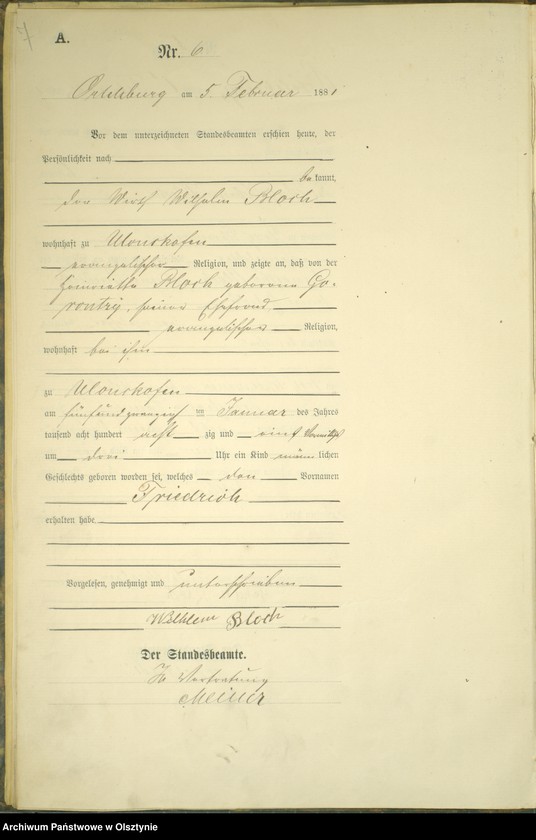 A.
Nr. 6
Ortelsburg am 5. Februar 1881
Vor dem unterzeichneten Standesbeamten erschien heute, der
Persönlichkeit nach
bekannt,
der Wirth Wilhelm Bloch
wohnhaft zu
evangelischer Religion, und zeigte an, daß von der
Henriette Bloch geborene
seiner Ehefrau,
evangelischer Religion,
wohnhaft bei ihm
zu
am fünfundzwanzigsten Januar des Jahres
tausend acht hundert acht zig und eins Vormittags
um drei Uhr ein Kind männlichen
Geschlechts geboren worden sei, welches den Vornamen
Friedrich
erhalten habe.
Vorgelesen, genehmigt und unterschrieben
Wilhlem Bloch
Der Standesbeamte.
In Vertretung
Archiwum Państwowe w Olsztynie